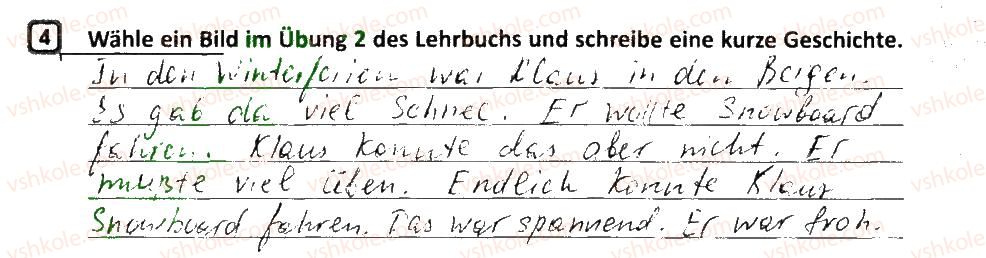 4 Wähle ein Bild im Übung 2 des Lehrbuchs und schreibe eine kurze Geschichte.
In den Winterferien war Klaus in den Bergen.
Es gab da viel Schnee. Er wollte Snowboard
fahren. Klaus konnte das aber nicht. Er
mußte viel üben. Endlich konnte Klaus
Snowboard fahren. Das war spannend. Er war froh.